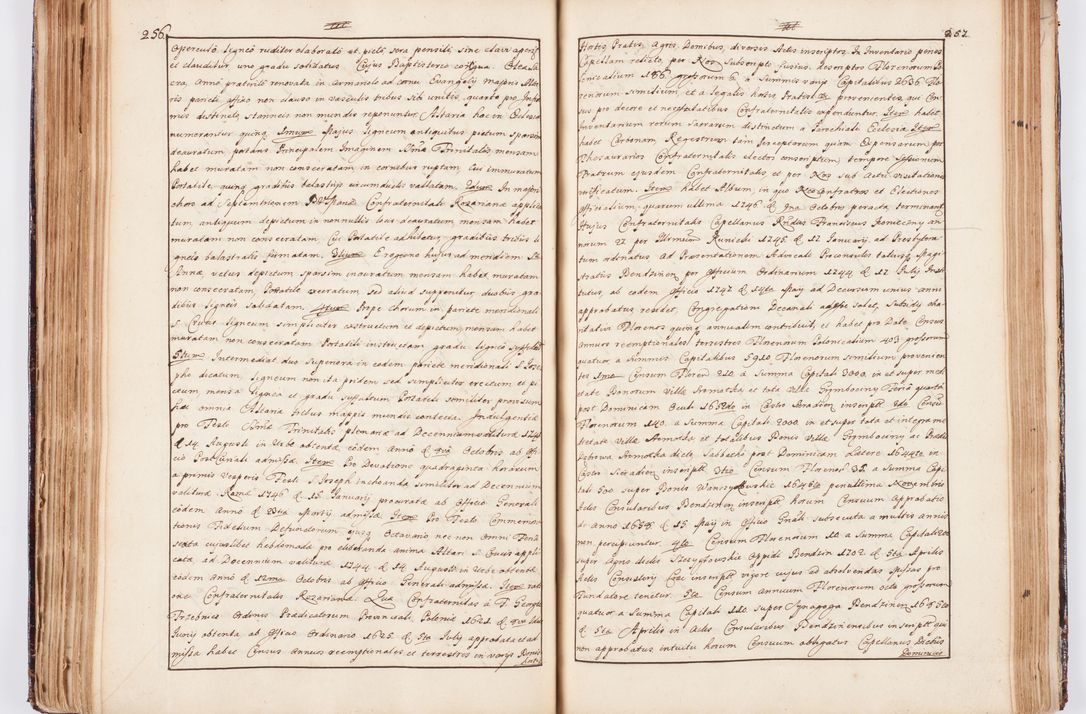 256.
operculo ligneo ruditer elaborato et picto, sera pensili, sine clavi aperit
et clauditur, uno gradu solidatus. Cujus Baptisterio contigua. Olea Sa
cra, Anno praeterito renovata in armariolo ad cornu Evangelij majoris Alta
ris parieti affixo non clauso in vasculis tribus sibi unitis, quarto pro Infir
mis distincto, stanneis non mundis reponuntur. Altaria hac in Ecclesia
numerantur quinq. Imum Majus ligneum antiquitus pictum sparsim
deauratum portans Principalem Imaginem SSmae Trinitatis, mensam
habet muratam non consecratam in cornibus ruptam, cui immuratum
Portatile, quinq gradibus balastrijs circumductis vallatum. 2dum In majori
choro ad Septemtrionem Confraternitatis Rosarianae applica
tum, antiquum depictum in nonnullis locis deauratum mensam habet
muratam non consecratam, Cui Portatile adhibetur, gradibus tribus li
gneis balastratis firmatum. 3tium E regione hujus ad meridiem S.
Annae, vetus depictum sparsim inauratum mensam habet muratam
non consecratam, Portatile execratum sed aliud supponitur, duobus gra
dibus ligneis solidatum. 4tum Prope Chorum in pariete meridionali
S. Crucis ligneum simpliciter extructum et depictum, mensam habet
muratam non consecratam Portatili instructam gradu ligneo suffultam
5tum Intermediat duo Superiora in eodem pariete meridionali S. Jose
pho dicatum, ligneum non ita pridem sed simpliciter erectum et pi
ctum mensa lignea et gradu suffultum Portatili similiter provisum
haec omnia Altaria tribus mappis mundis contecta. Indulgentiae
pro Festo SSmae Trinitatis plenariae ad Decennium valiturae 1744
d 14 Augusti in Urbe obtentae eodem Anno d Octobris ab Offi
cio Generali admissae. Item Pro Devotione quadraginta horarum
a primis Vesperis Festi S Joseph inchoanda similiter ad Decennium
valiturae Romae 1746 d 15 Januarij procuratae ab Officio Generali
eodem Anno d Martij admissae Item Pro Festo Commemora
tionis Fidelium Defunctorum Octavario nec non omni Feria
sexta cujuslibet hebdomadae pro liberanda anima Altari S. Crucis appli
catae ad Decennium valiturae 1744 d 14 Augusti in Urbe obtentae
eodem Anno d 12ma Octobris ab Officio Generali admissae. Item rati
one Confraternitatis Rosarianae. Quae Confraternitas a P. Georgio
Trzebnic Ordinis Praedicatorum Provinciali Poloniae 1621 d
Junij obtenta ab Officio Ordinario 1625 d 5ta July approbata et ad
missa habet Census annuos reemptionales et terrestres in varijs Bonis
257.
Hortos, Pratis, Agros, Domibus, diversis Actis inscriptos. In Inventario penes
Capellam relicto, per Nos subscripto fusius descriptos Florenorum Po
lonicalium 186 grosorum 6 a Summis varijs Capitalibus 2636 Flo
renorum similium, et a legatis hortis Pratis proventus, qui Con
sus pro decore et necessitatibus Confraternitatis expenduntur. Item habet
Inventarium rerum sacrarum distinctum a Parochiali Ecclesia Item
habet Carbonam, Registrum tam Perceptorum quam Expensarum per
Thesaurarios Confraternitatis electos conscriptum, tempore Sessionum
Fratrum ejusdem Confraternitatis, et per Nos sub actu visitationis
verificatum. Item habet Album, in quo Confratres et Electiones
Officialium, quarum ultima 1746 d 9na Octobris peracta terminantur
Hujus Confraternitatis Capellanus Rndus Franciscus an
norum 27 per Illrmum Kunicki 1745 d 12 Januarij ad Presbytera
tum ordinatus ad Praesentationem Foederati Proconsulis totiusq. Magi
stratus Bendzinen per Officium Ordinarium 1744 d 17 July Insti
tutus, ab eodem Officio 1747 d 14ta Maij ad Decursum unius anni
approbatus residet, Congregationi Decanali adesse solet, Subsidij cha
ritativi Florenos quinq. annuatim contribuit, et habet pro Dote Census
annuos reemptionales, terrestres Florenorum Polonicalium 403 grosorum
quatuor a Summis Capitalibus 5920 Florenorum similium provenien
tes 1mo Censum Floren 210 a Summa Capitali 3000, in et super medi
etate Bonorum Villae Armotka et tota Villa Grymbociny Feria quarta
post Dominicam Oculi 1652do in Castro Siradien inscriptum 2do Census
Florenorum 140. a Summa Capitali 2000 in et super tota et integra me
dietate Villae Armotka et totalibus Bonis Villae Grymbociny ac Praedio
Petrowa Armotka dicta, Sabbatho post Dominicam Laetare 1644to in
Castro Siradien inscriptum 3tio Censum Florenos 32 a Summa Capi
tali 500 super Bonis Wanczykowskie 1646to penultima Novembris
Actis Consularibus Bendzinen inscriptum, horum Censuum Approbatio
de Anno 1658 d 15 Maij in Officio Gnali subsecuta a multis annis
non percipiuntur. 4to Censum Florenorum 10 a Summa Capitali 200
super Agro dicto Skrzypkowskie Oppidi Bendzin 1702 d 5ta Aprilis
Actis Consulary Coae inscriptum vigore cujus ad absolvendas Missas pro
Fundatore tenetur. 5to Censum annuum Florenorum octo grosorum
quatuor a Summa Capitali 120 super Synagoga Bendzinen 1695to
d 5ta Aprilis in Actis Consularibus Bendzinensibus inscriptum qui
non approbatus, intuitu horum Censuum obligatur Capellanus Diebus
Dominicis